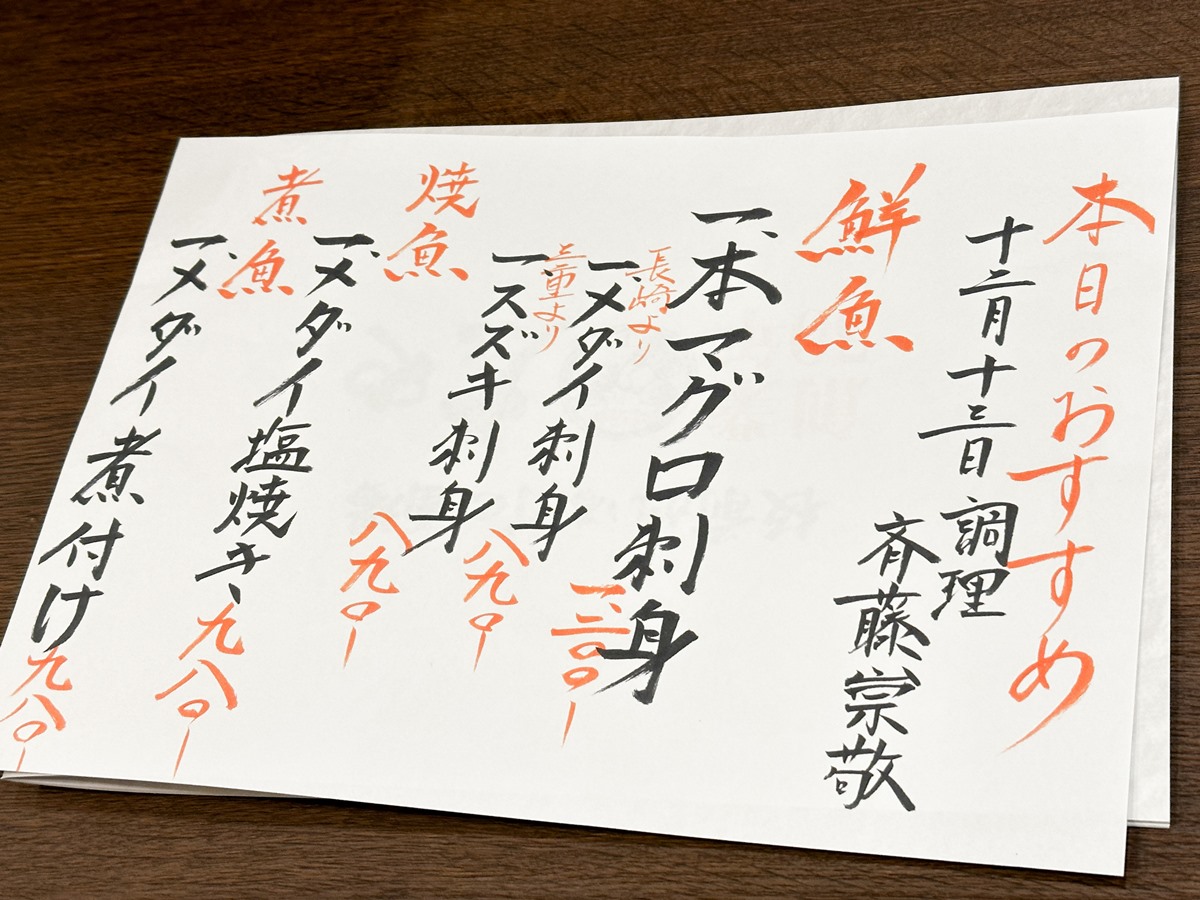 本日のおすすめ
十二月十三日 調理
斉藤崇敬
鮮魚
一、本マグロ刺身 一、三〇〇ー
長崎より
一、メダイ刺身 八九〇ー
三重より
一、スズキ刺身 八九〇ー
焼魚
一、メダイ塩焼き、九八〇ー
煮魚
一、メダイ煮付け 九八〇ー